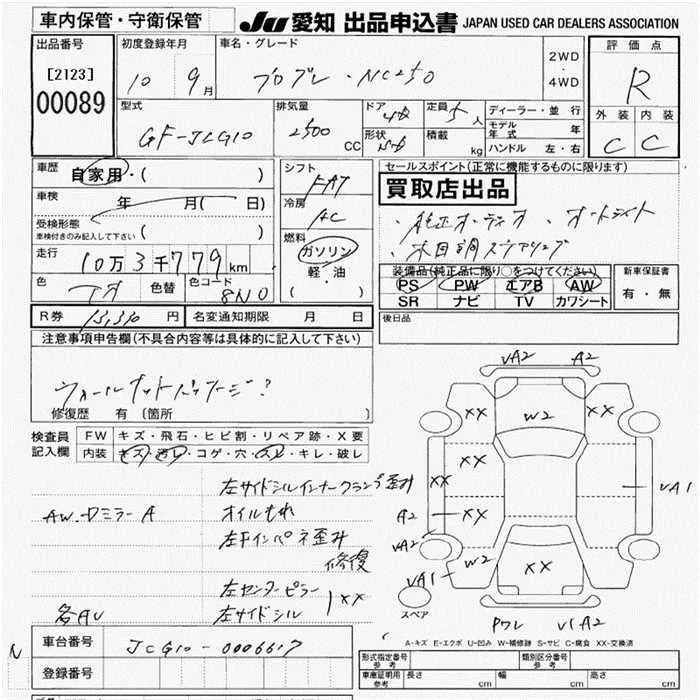 車内保管・守衛保管
JU 愛知 出品申込書 JAPAN USED CAR DEALERS ASSOCIATION
出品番号
[2123]
00089
初度登録年月
10 9月
車名・グレード
プログレ・NC250
2WD
・
4WD
評価点
R
外装 内装
C C
型式
GF-JCG10
排気量
2500 CC
ドア
4D
形状
定員 5人
積載 kg
ディーラー・並行
モデル年式 年
ハンドル 左・右
車歴
自家用・( )
車検
年 月( 日)
受検形態
車検付きのみ記入して下さい ( )
走行
10万3千779km
色
色替
色コード
8N0
シフト
FAT
冷房
AC
燃料
ガソリン
軽・油
( )
セールスポイント(正常に機能するものに限ります)
買取店出品
・純正オーディオ ・オートライト
・木目調ステアリング
装備品(純正品に限り○をつけてください)
PS PW エアB AW
SR ナビ TV カワシート
新車保証書
有・無
後日品
R券 13,310円
名変通知期限 月 日
注意事項申告欄(不具合内容等は具体的に記入して下さい)
ウォールナットパッケージ?
修復歴 有(箇所 )
検査員
記入欄
FW キズ・飛石・ヒビ割・リペア跡・X要
内装 キズ・汚レ・コゲ・穴・スレ・キレ・破レ
左サイドシルインナークランプ歪み
AW. Dミラー A
オイルもれ
左Fインパネ歪み
修復
左センターピラー
左サイドシル
XX
各AU
VA2 A2
XX W2 XX
XX
XX
VA1
A2 XX
VA2
VA1 W2 XX
スペア
Pワレ V1A2
A-キズ E-エクボ U-凹み W-補修跡 S-サビ C-腐食 XX-交換済
N
車台番号
JCG10-0006617
登録番号
形式指定番号
参考
類別区分番号
参考
車庫証明用
参考
長さ cm
幅 cm
高さ cm